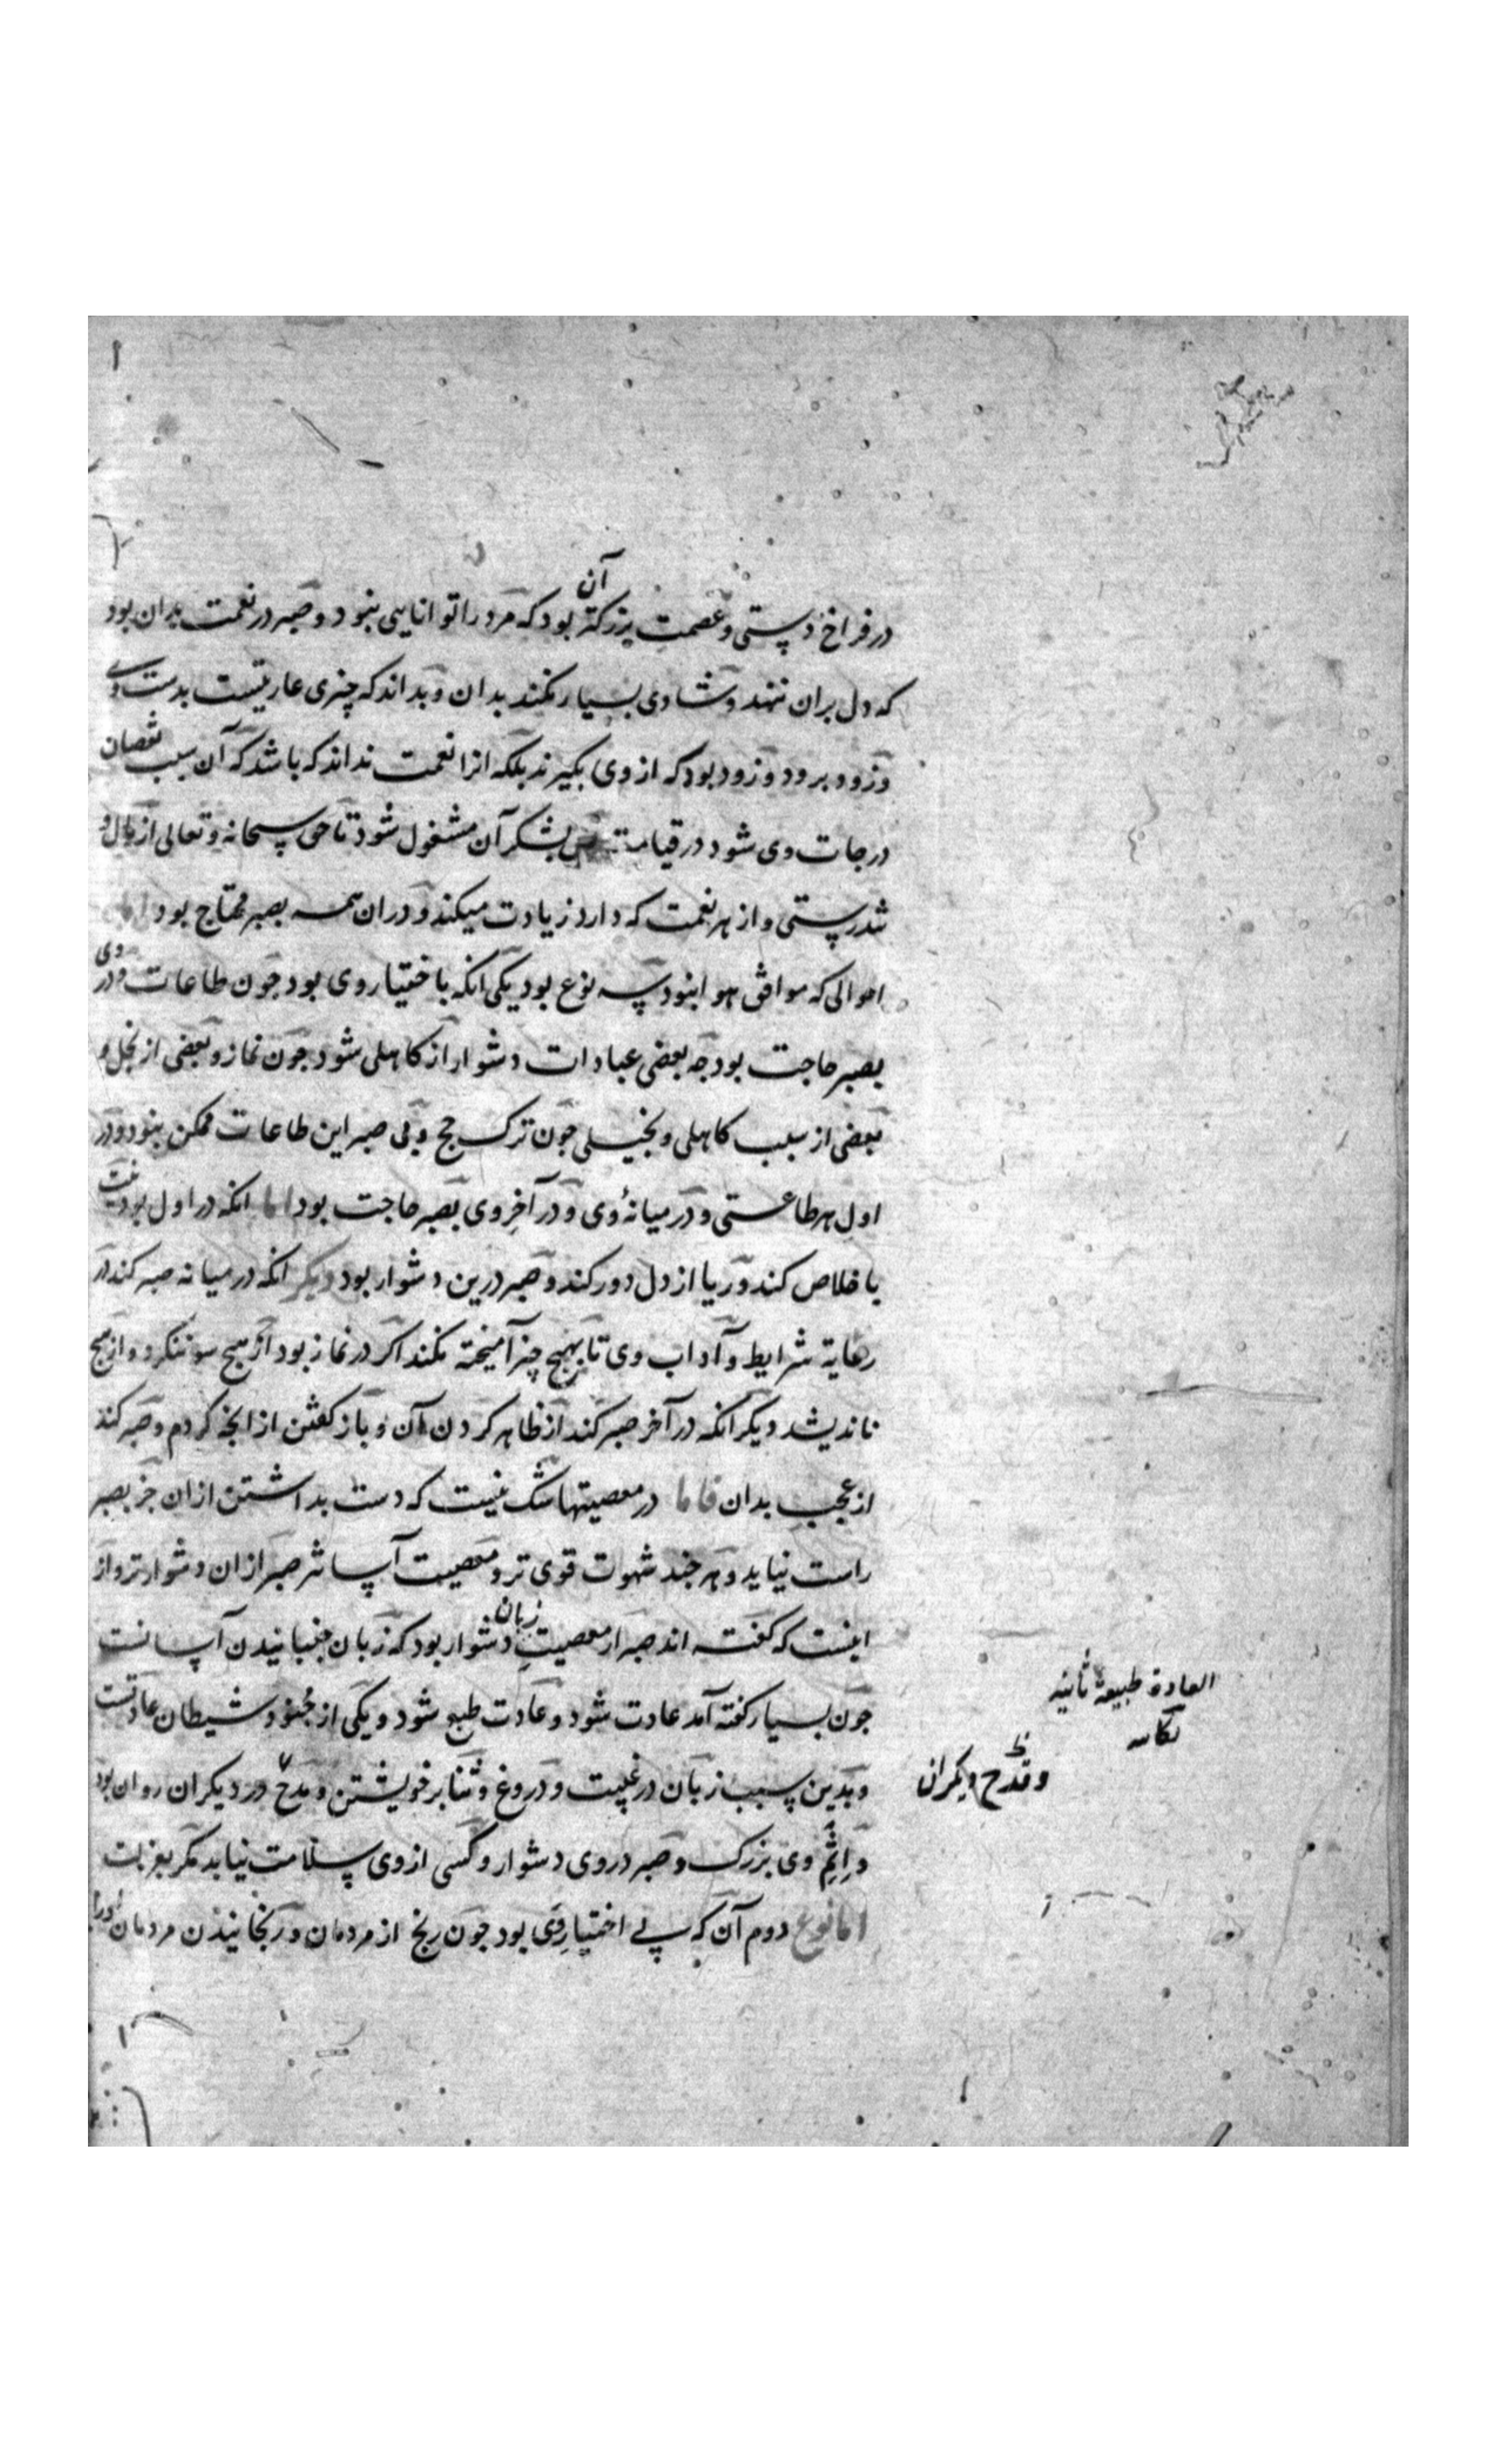 در فراخ دستی و عصمت بزرکتر آن بود که مرد را توانایی نبود و صبر در نعمت بدان بود
که دل بران ننهد و شادی بسیار نکند بدان و بداند که چیزی عاریتست بدست وی
و زود برود و زود بود که از وی بکیرند بلکه انرا نعمت نداند که باشد که آن سبب نقصان
درجات وی شود در قیامت پس بشکر آن مشغول شود تا حق سبحانه و تعالی از مال و
تندرستی و از هر نعمت که دارد زیادت میکند و دران همه بصبر محتاج بود اما
احوالی که موافق هوا نبود سه نوع بود یکی انکه باختیار وی بود جون طاعات و در وی
بصبر حاجت بود جه بعضی عبادات دشوار از کاهلی شود جون نماز و بعضی از بخل و
بعضی از سبب کاهلی و بخیلی جون ترک حج و بی صبر این طاعات ممکن نبود و در
اول هر طاعتی و در میانهٔ وی و در آخر وی بصبر حاجت بود اما انکه در اول بود نیت
باخلاص کند و ریا از دل دور کند و صبر درین دشوار بود دیکر انکه در میانه صبر کند در
رعایة شرایط و آداب وی تا بهیج چیز آمیخته نکند اکر در نماز بود از هیج سو ننکرد و از هیج
ناندیشد دیکر انکه در آخر صبر کند از ظاهر کردن آن و باز کفتن از انجه کردم و صبر کند
از عجب بدان فاما در معصیتها شک نیست که دست بداشتن ازان جز بصبر
راست نیاید و هر جند شهوت قوی تر و معصیت آسانتر صبر ازان دشوارتر و از
اینست که کفته اند صبر از معصیت زبان دشوار بود که زبان جنبانیدن آسانست
جون بسیار کفته آمد عادت شود و عادت طبع شود و یکی از جنود شیطان عادتست
العادة طبیعة ثانیة
و بدین سبب زبان در غیبت و دروغ و ثنا بر خویشتن و مدح در دیکران روان بود
و قدح دیکران
و اثم وی بزرک و صبر در وی دشوار و کسی از وی سلامت نیابد مکر بعزلت
اما نوع دوم آن که بی اختیار وی بود جون رنج از مردمان و رنجانیدن مردمان